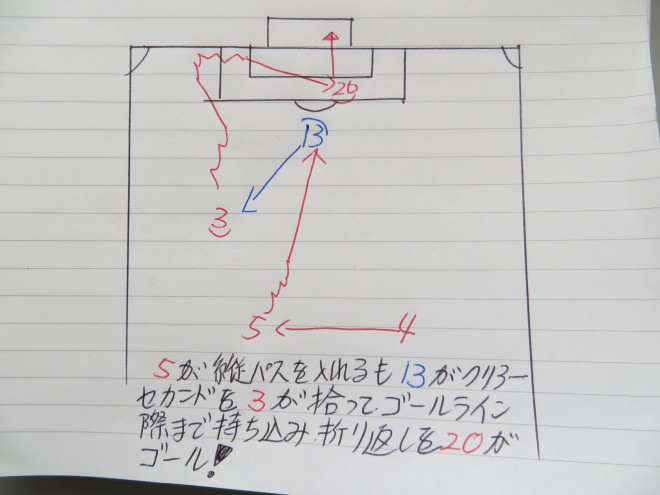 20
13
3
5
4
5が縦パスを入れるも13がクリアー
セカンドを3が拾って.ゴールライン
際まで持ち込み.折り返しを20が
ゴール!